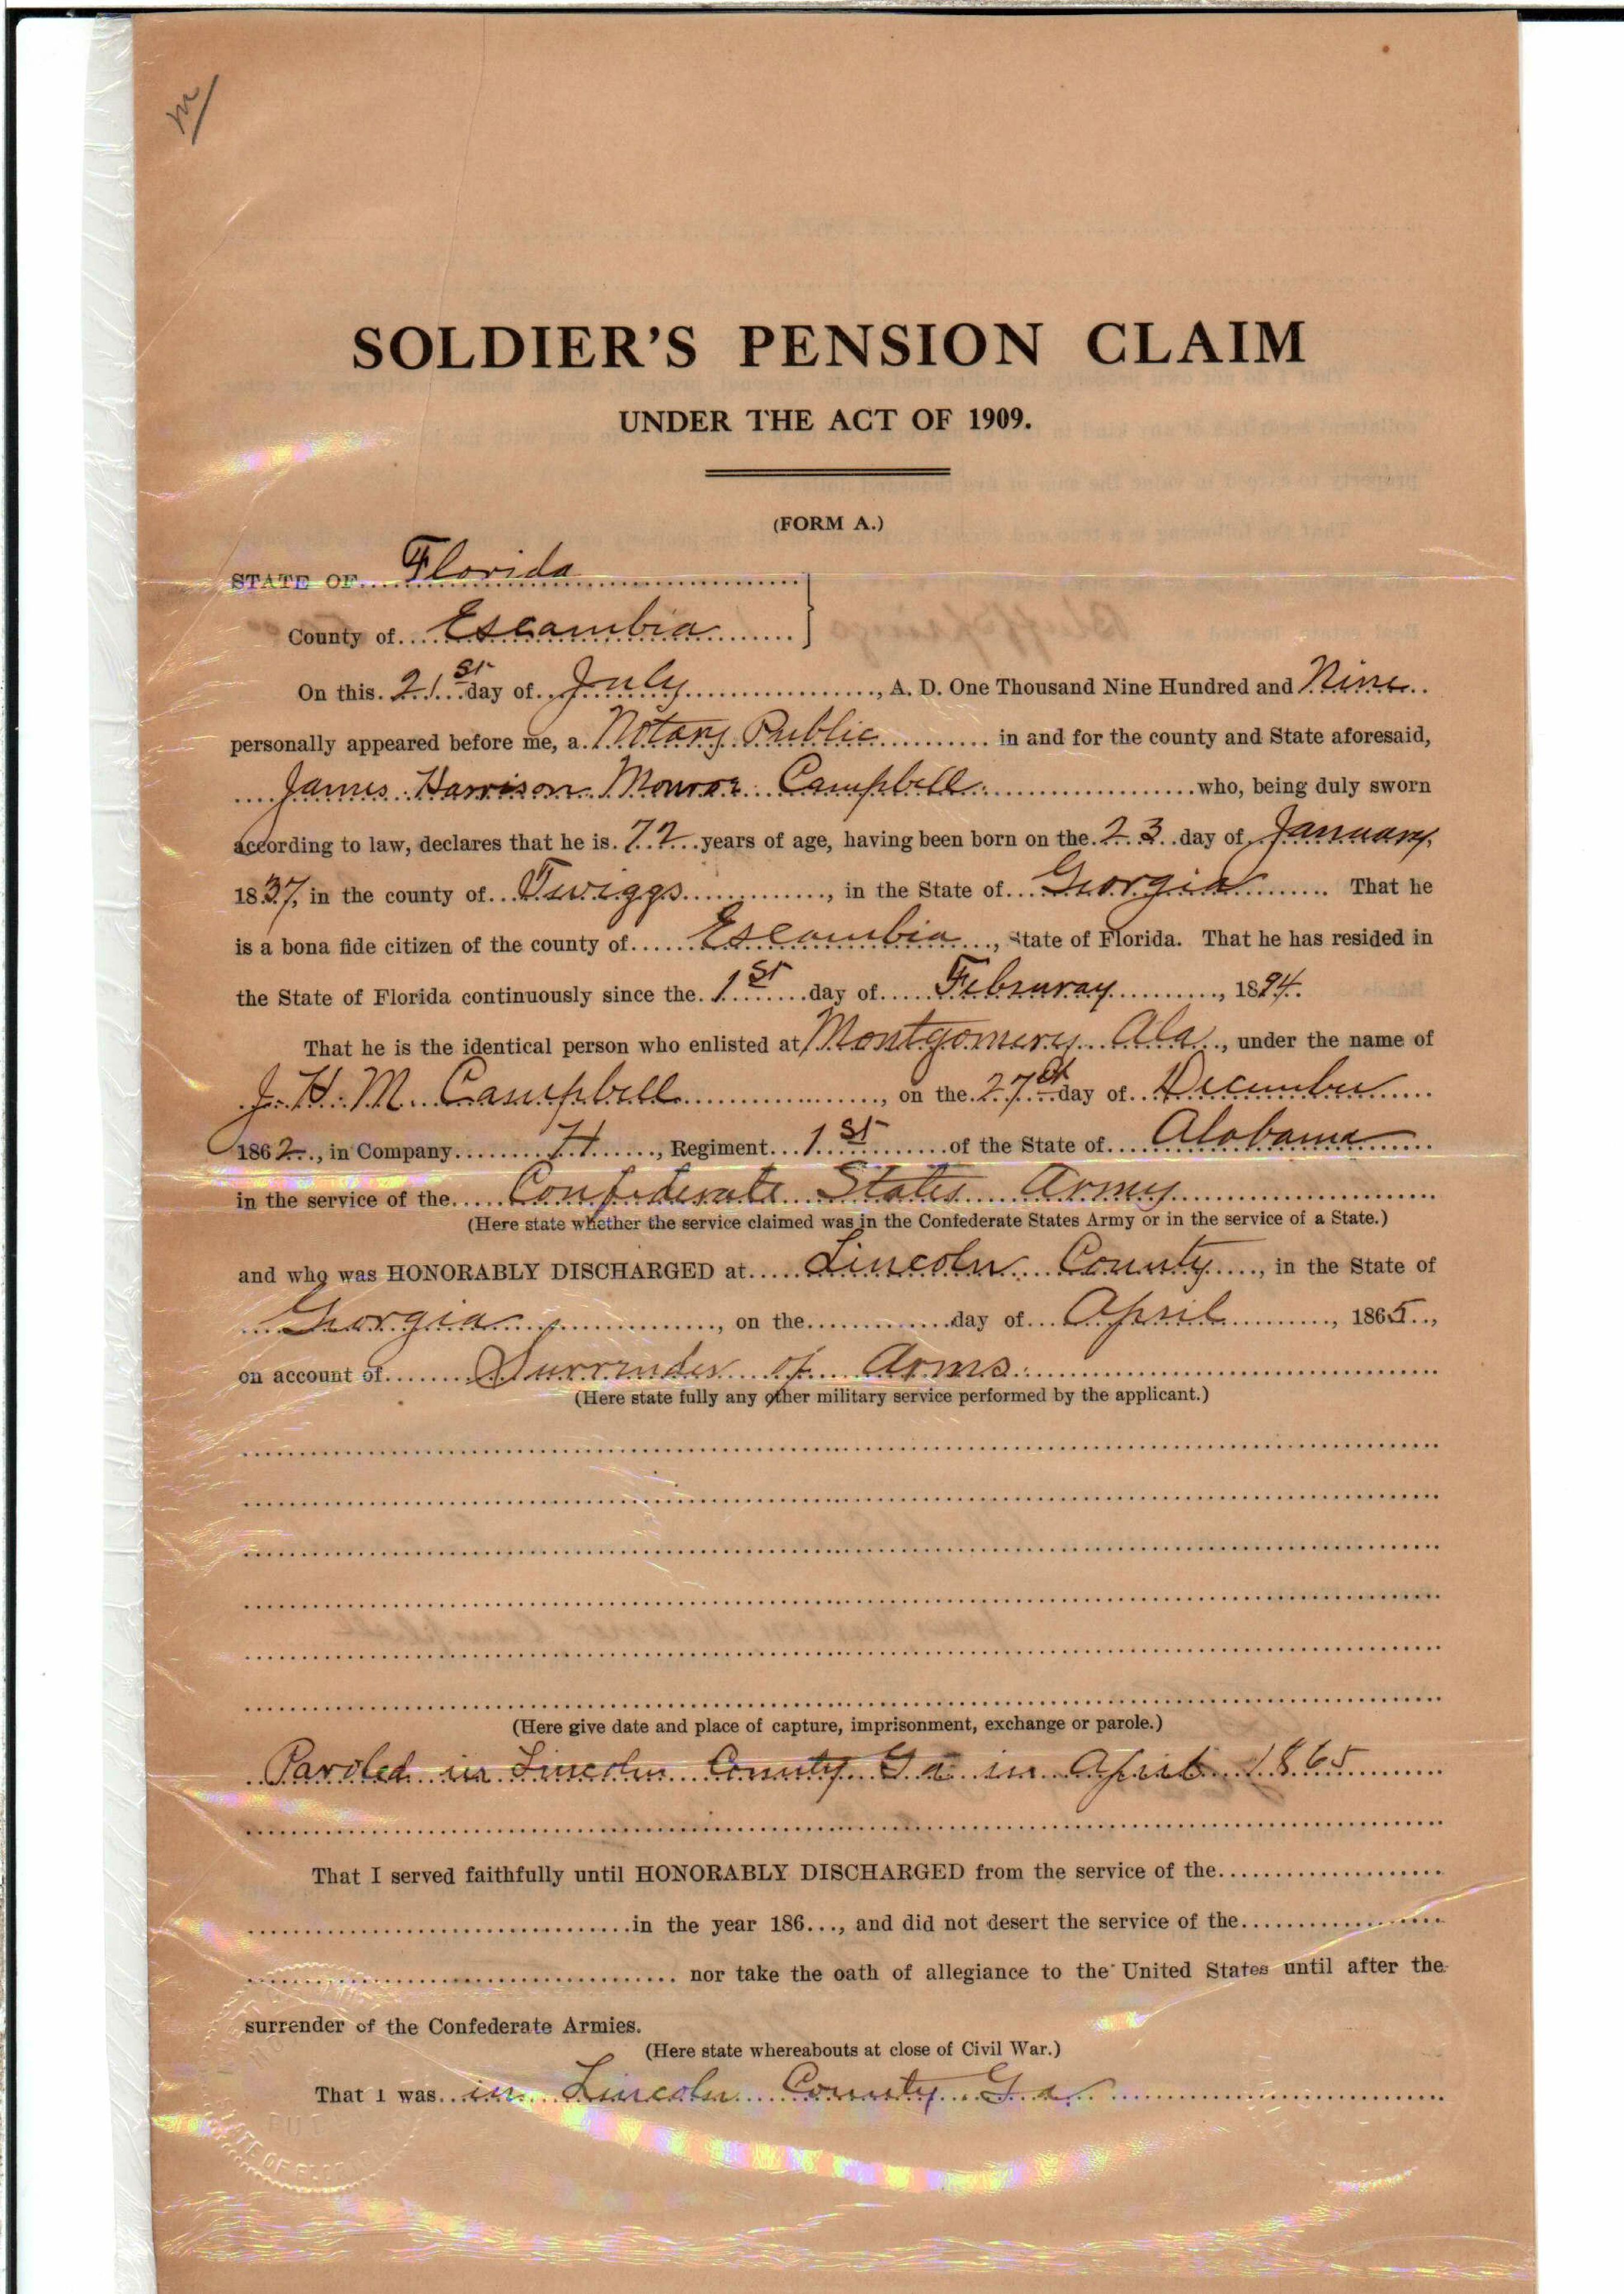 M
SOLDIER'S PENSION CLAIM
UNDER THE ACT OF 1909.
(FORM A.)
STATE OF Florida
County of Escambia
On this 21st day of July, A. D. One Thousand Nine Hundred and Nine
personally appeared before me, a Notary Public in and for the county and State aforesaid,
James Harrison Monroe Campbell who, being duly sworn
according to law, declares that he is 72 years of age, having been born on the 23 day of January
1837, in the county of Twiggs, in the State of Georgia. That he
is a bona fide citizen of the county of Escambia, State of Florida. That he has resided in
the State of Florida continuously since the 1st day of Februray, 1894.
That he is the identical person who enlisted at Montgomery Ala, under the name of
J. H. M. Campbell, on the 27th day of December
1862, in Company H, Regiment 1st of the State of Alabama
in the service of the Confederate States Army
(Here state whether the service claimed was in the Confederate States Army or in the service of a State.)
and who was HONORABLY DISCHARGED at Lincoln County, in the State of
Georgia, on the day of April, 1865,
on account of Surrender of Arms.
(Here state fully any other military service performed by the applicant.)
(Here give date and place of capture, imprisonment, exchange or parole.)
Paroled in Lincoln County Ga in April 1865
That I served faithfully until HONORABLY DISCHARGED from the service of the
in the year 186, and did not desert the service of the
nor take the oath of allegiance to the United States until after the
surrender of the Confederate Armies.
(Here state whereabouts at close of Civil War.)
That I was in Lincoln County Ga